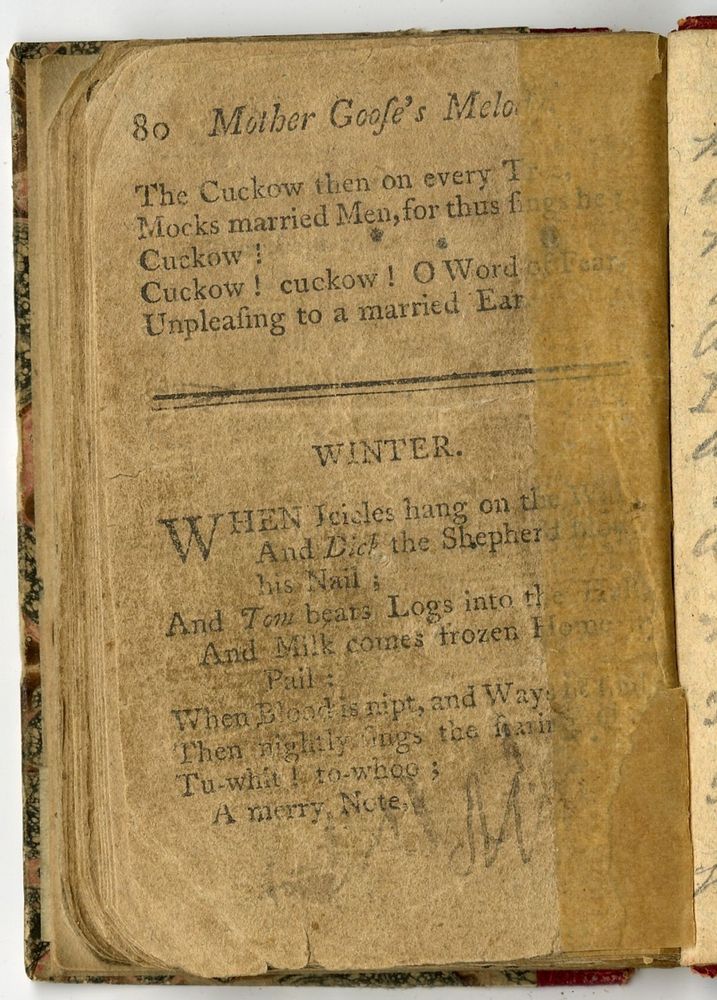 80 Mother Gooſe's Melo
The Cuckow then on every
Mocks married Men, for thus ſings he
Cuckow !
Cuckow ! cuckow ! O Word of Fear
Unpleaſing to a married Ear
WINTER.
WHEN Icicles hang on the
And Dick the Shepherd
his Nail ;
And Tom bears Logs into the
And Milk comes frozen Home
Pail :
When Blood is nipt, and Ways
Then nightly ſings the ſtarin
Tu-whit ! to-whoo ;
A merry Note,